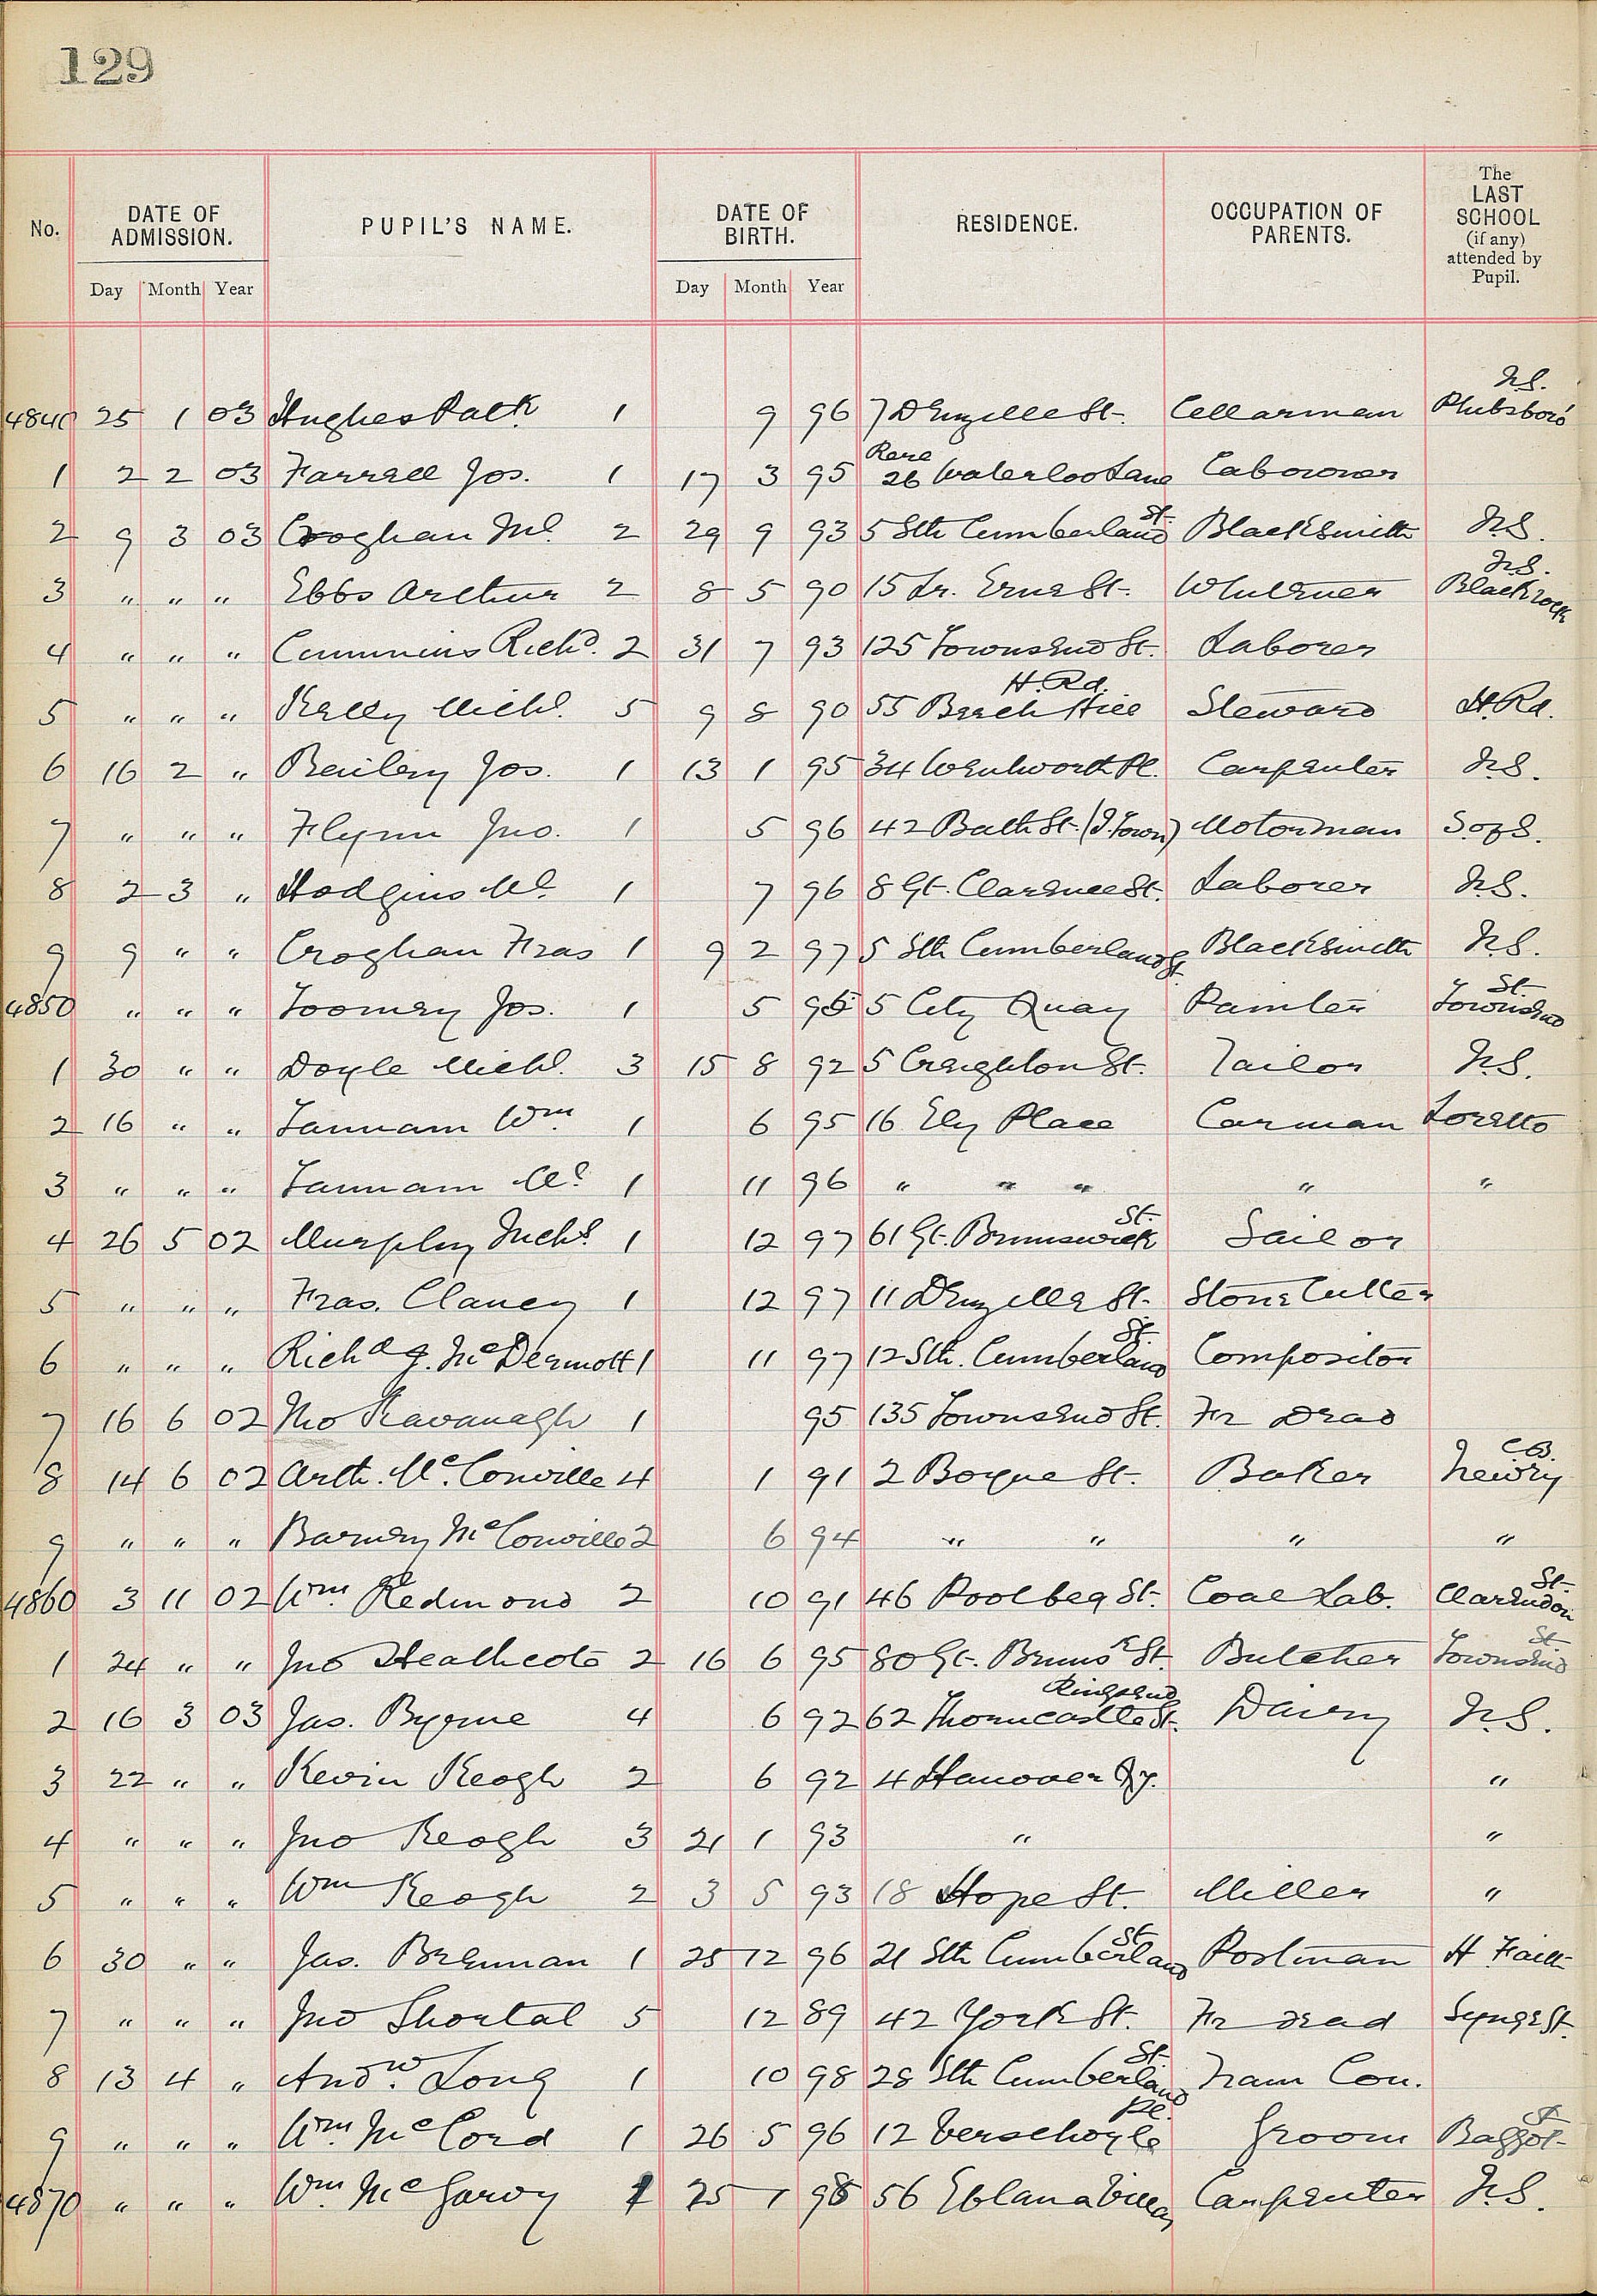 129
No. DATE OF ADMISSION. PUPIL'S NAME. DATE OF BIRTH. RESIDENCE. OCCUPATION OF PARENTS. The LAST SCHOOL (if any) attended by Pupil.
Day Month Year Day Month Year
4840 25 1 03 Hughes Patk. 1 9 96 7 Denzille St. Cellarman N.S. Phibsboro'
1 2 2 03 Farrell Jos. 1 17 3 95 Rere 26 Waterloo Lane Labourer
2 9 3 03 Croghan Ml. 2 29 9 93 5 Sth Cumberland St. Blacksmith N.S.
3 " " " Ebbs Arthur 2 8 5 90 15 Lr. Erne St. N.S. Blackrock
4 " " " Cummins Richd. 2 31 7 93 125 Townsend St. Laborer
5 " " " Kelly Michl. 5 9 8 90 55 Beech Hill H. Rd. Steward H. Rd.
6 16 2 " Bailey Jos. 1 13 1 95 34 Wentworth Pl. Carpenter N.S.
7 " " " Flynn Jno. 1 5 96 42 Bath St. (I. Town) Motorman S. of S.
8 2 3 " Hodgins Ml. 1 7 96 8 Gt. Clarence St. Laborer N.S.
9 9 " " Croghan Fras 1 9 2 97 5 Sth Cumberland St. Blacksmith N.S.
4850 " " " Toomey Jos. 1 5 95 5 City Quay Painter Townsend St.
1 30 " " Doyle Michl. 3 15 8 92 5 Creighton St. Tailor N.S.
2 16 " " Tannam Wm. 1 6 95 16 Ely Place Carman Loretto
3 " " " Tannam Ml. 1 11 96 " " " " "
4 26 5 02 Murphy Michl. 1 12 97 61 Gt. Brunswick St. Sailor
5 " " " Fras. Clancy 1 12 97 11 Denzille St. Stone Cutter
6 " " " Richd J. McDermott 1 11 97 12 Sth. Cumberland St. Compositor
7 16 6 02 Tho Kavanagh 1 95 135 Townsend St. Fr Dead
8 14 6 02 Arth. McConville 4 1 91 2 Boyne St. Baker C.B. Newry
9 " " " Barney McConville 2 6 94 " " " "
4860 3 11 02 Wm. Redmond 2 10 91 46 Poolbeg St. Coal Lab. Clarendon St.
1 24 " " Jno Heathcote 2 16 6 95 80 Gt. Brunsk St. Butcher Townsend St
2 16 3 03 Jas. Byrne 4 6 92 62 Thorncastle St. Ringsend Dairy N.S.
3 22 " " Kevin Keogh 2 6 92 4 Hanover Qy. "
4 " " " Jno Keogh 3 21 1 93 " "
5 " " " Wm Keogh 2 3 5 93 18 Hope St. Miller "
6 30 " " Jas. Brennan 1 25 12 96 21 Sth Cumberland St Postman H. Faith
7 " " " Jno Shortal 5 12 89 42 York St. Fr dead Synge St.
8 13 4 " Andw. Long 1 10 98 28 Sth Cumberland St. Tram Con.
9 " " " Wm. McCord 1 26 5 96 12 Verschoyle Pl. Groom Baggot St
4870 " " " Wm. McGarvy 1 25 1 98 56 Eblana Villas Carpenter N.S.